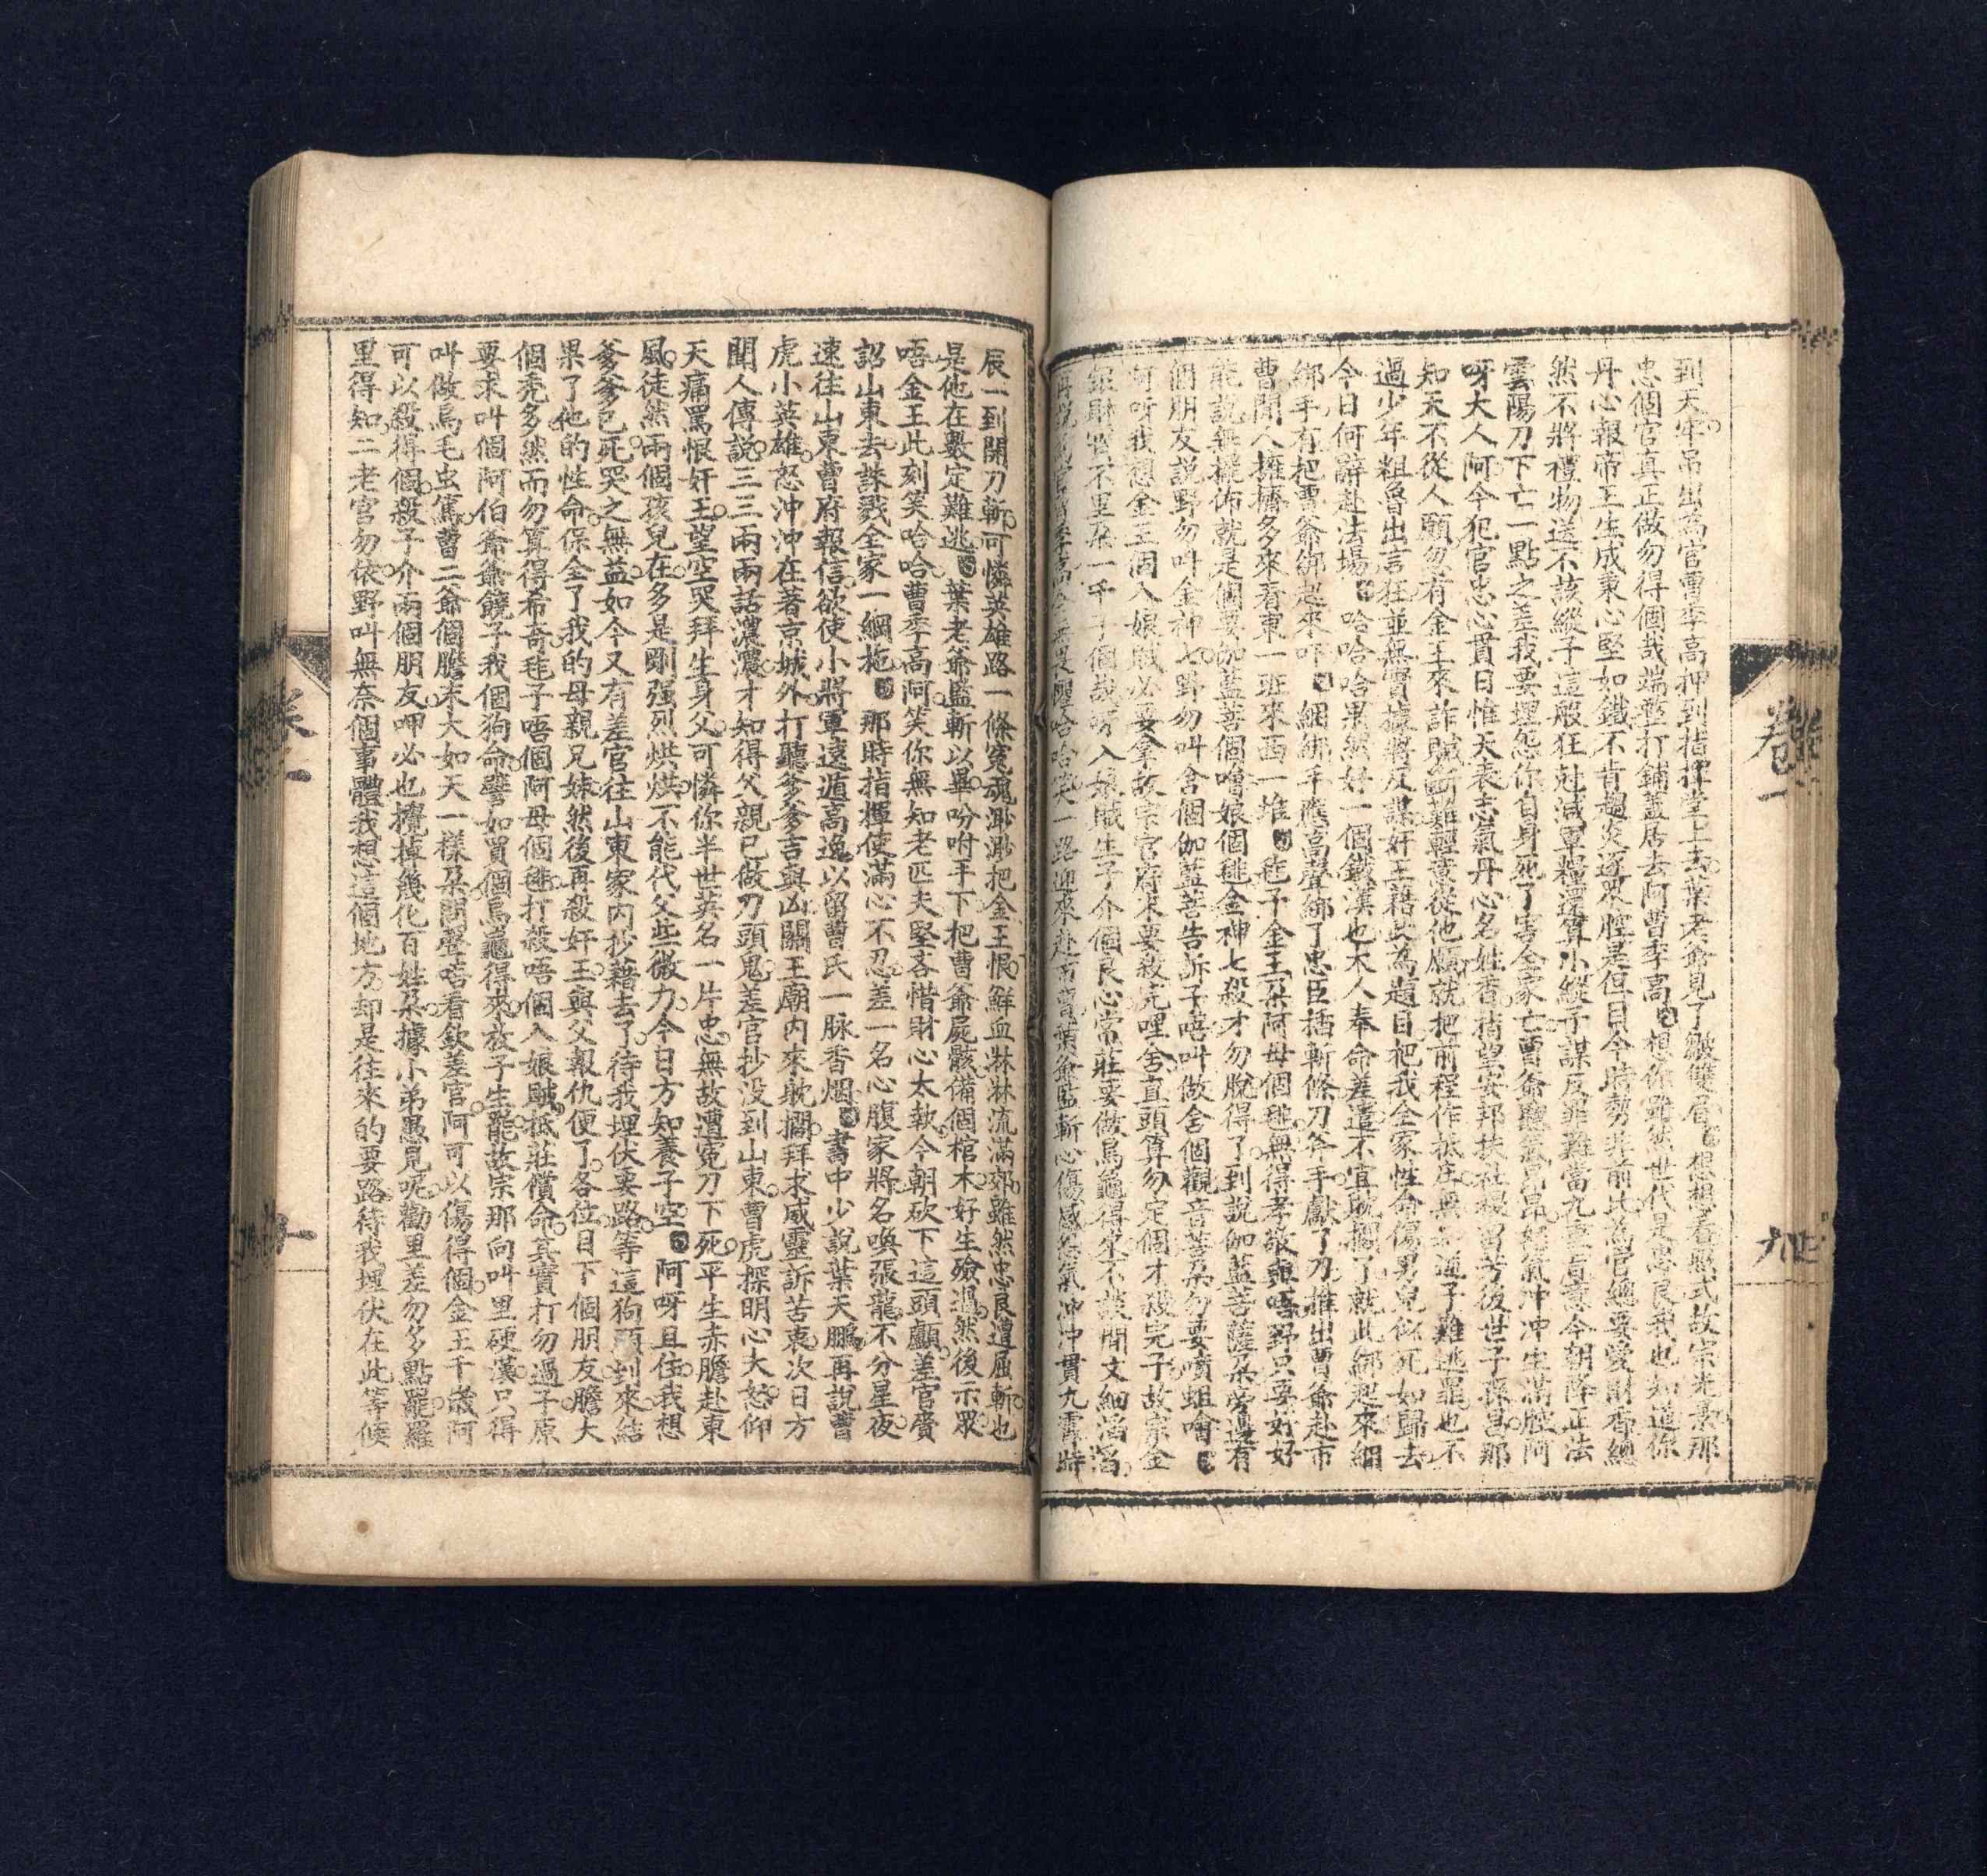 到天牢吊出爲官曹季高押到指揮堂上去葉老爺見了皺雙眉想想看照式故宗光景那
忠個官真正做勿得個哉端整打鋪蓋居去阿曹季高想你雖然世代是忠良我也知道你
丹心報帝王生成秉心堅如鐵不肯趨炎逐勢腔是但目今時勢非前比爲官總要愛財香總
然不將禮物送不該縱子這般狂尅減軍糧還算小縱子謀反罪難當九重旨意今朝降正法
雲陽刀下亡一點之差我要埋怨你自身死了害全家亡曹爺聽氣昂昂怒氣冲冲生滿腔阿
呀大人阿今犯官忠心貫日惟天表志氣丹心名姓香指望安邦扶社稷留芳後世子孫昌那
知天不從人願忽有金王來詐贓斷難輕意從他願就把前程作抵庄無 通子難逃罪也不
過少年粗魯出言狂並無實據將反謀奸王藉此爲題目把我全家性命傷男兒似死如歸去
今日何辭赴法場 哈哈哈果然好一個鐵漢也本人奉命差遣不宜耽擱了就此綁起來細
綁手有把曹爺綁起來吓 細綁手應高聲綁了忠臣插斬條刀斧手獻了刀推出曹爺赴市
曹閒人擁擠多來看東一班來西一堆
能說無擺佈就是個要伽藍菩個噲娘個 金神七殺才勿脫得了到說伽藍菩薩朶旁邊有
個朋友說野勿叫金神七野勿叫舍個伽藍菩告訴子嘻叫做舍個觀音菩朶勿要噴蛆噲
阿呀我想金王個入娘賊必要拿故宗官府來要殺完哩舍直頭算勿定個才殺完子故宗金
銀財寶不里朶一千子個哉呀入娘賊生子介個良心當莊要做烏龜得來不談閒文細滔滔
哈哈笑一路迎來赴市曹葉爺監斬心傷感怨氣冲冲貫九霄時
辰一到開刀斬可憐英雄路一條冤魂渺渺把金王恨鮮血淋淋流滿郊雖然忠良遭屈斬也
是他在數定難逃 葉老爺監斬以畢吩咐手下把曹爺屍骸備個棺木好生殮過然後示眾
唔金王此刻笑哈哈曹季高阿笑你無知老匹夫堅吝惜財心太執今朝砍下這頭顱差官賫
詔山東去誅戮全家一綱拖 那時指揮使滿心不忍差一名心腹家將名喚張龍不分星夜
速往山東曹府報信欲使小將軍遠遁高逸以留曹氏一脉香烟 書中少說葉天鵬再說曹
虎小英雄怒沖沖在著京城外打聽爹爹吉與凶關王廟内來耽擱拜求威靈訴苦衷次日方
聞人傳說三三兩兩話濃濃才知得父親已做刀頭鬼差官抄没到山東曹虎探明心大怒仰
天痛罵恨奸王望空哭拜生身父可憐你半世英名一片忠無故遭冤刀下死平生赤膽赴東
風徒然兩個孩兒在多是剛强烈烘烘不能代父些微力今日方知養子空 阿呀且住我想
爹爹已死哭之無益如今又有差官往山東家内抄藉去了待我埋伏要路等這狗頭到來結
果了他的性命保全了我的母親兄妹然後再殺奸王與父報仇便了各位目下個朋友膽大
個禿多然而勿算得希奇 子唔個阿母個 打殺唔個入娘賊抵莊償命其實打勿過子原
要求叫個阿伯爺爺饒子我個狗命譬如買個烏龜得來放子生能故宗那向叫里硬漢只得
叫做烏毛虫篤曹二爺個膽末大如天一樣朶閙聲唔看欽差官阿可以傷得個金王千歲阿
可以殺得個殺子介兩個朋友呷必也攪掉幾化百姓朶據小弟愚見呢勸里差勿多點罷羅
里得知二老官勿依野叫無奈個事體我想這個地方却是往來的要路待我埋伏在此等候
卷一
卷一